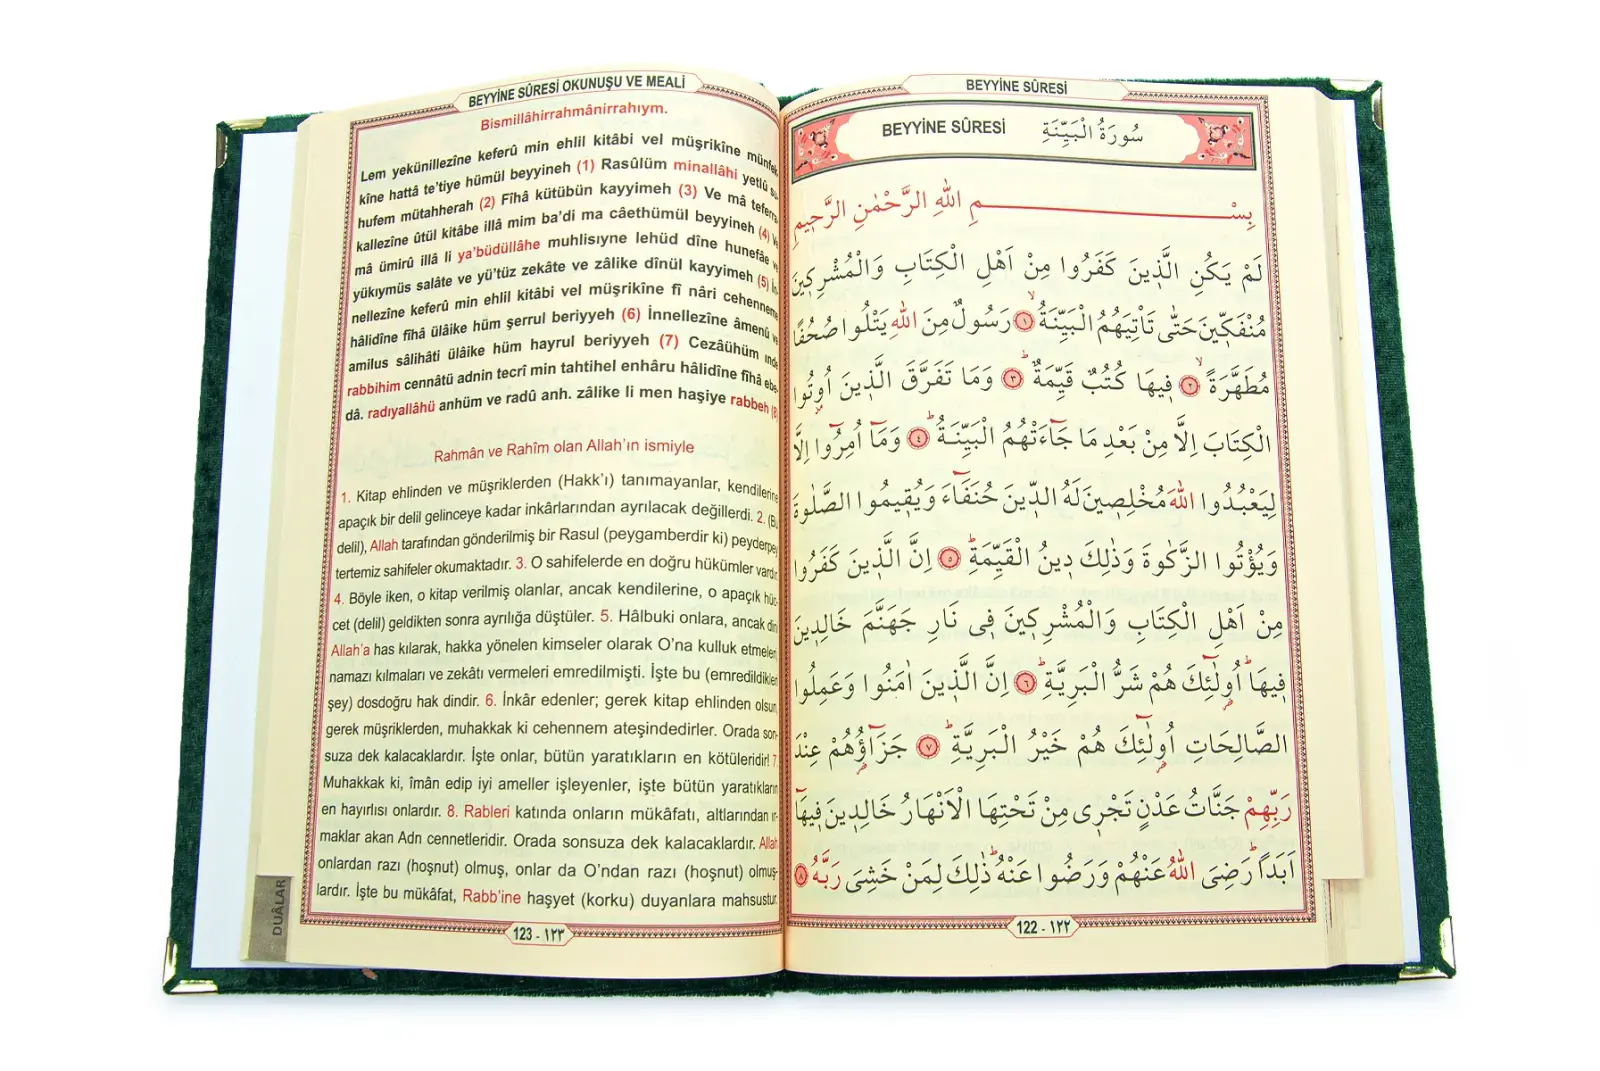 BEYYİNE SÛRESİ OKUNUŞU VE MEALİ
Bismillâhirrahmânirrahıym.
Lem yekünillezîne keferû min ehlil kitâbi vel müşrikîne münfek-
kîne hattâ te'tiye hümül beyyineh (1) Rasûlüm minallâhi yetlû su-
hufem mütahherah (2) Fîhâ kütübün kayyimeh (3) Ve mâ teferra-
kallezîne ûtül kitâbe illâ mim ba'di ma câethümül beyyineh (4) Ve
mâ ümirû illâ li ya'büdüllâhe muhlisıyne lehüd dîne hunefâe ve
yükıymüs salâte ve yü'tüz zekâte ve zâlike dînül kayyimeh (5) İn-
nellezîne keferû min ehlil kitâbi vel müşrikîne fî nâri cehenneme
hâlidîne fîhâ ülâike hüm şerrul beriyyeh (6) İnnellezîne âmenû ve
amilus sâlihâti ülâike hüm hayrul beriyyeh (7) Cezâühüm ınde
rabbihim cennâtü adnin tecrî min tahtihel enhâru hâlidîne fîhâ ebe-
dâ. radıyallâhü anhüm ve radû anh. zâlike li men haşiye rabbeh (8)
Rahmân ve Rahîm olan Allah'ın ismiyle
1. Kitap ehlinden ve müşriklerden (Hakk'ı) tanımayanlar, kendilerine
apaçık bir delil gelinceye kadar inkârlarından ayrılacak değillerdi. 2. (Bu
delil), Allah tarafından gönderilmiş bir Rasul (peygamberdir ki) peyderpey
tertemiz sahifeler okumaktadır. 3. O sahifelerde en doğru hükümler vardır.
4. Böyle iken, o kitap verilmiş olanlar, ancak kendilerine, o apaçık hüc-
cet (delil) geldikten sonra ayrılığa düştüler. 5. Hâlbuki onlara, ancak din
Allah'a has kılarak, hakka yönelen kimseler olarak O'na kulluk etmeleri
namazı kılmaları ve zekâtı vermeleri emredilmişti. İşte bu (emredildikleri
şey) dosdoğru hak dindir. 6. İnkâr edenler; gerek kitap ehlinden olsun,
gerek müşriklerden, muhakkak ki cehennem ateşindedirler. Orada son-
suza dek kalacaklardır. İşte onlar, bütün yaratıkların en kötüleridir! 7.
Muhakkak ki, îmân edip iyi ameller işleyenler, işte bütün yaratıkların
en hayırlısı onlardır. 8. Rableri katında onların mükâfatı, altlarından ır-
maklar akan Adn cennetleridir. Orada sonsuza dek kalacaklardır. Allah
onlardan razı (hoşnut) olmuş, onlar da O'ndan razı (hoşnut) olmuş-
lardır. İşte bu mükâfat, Rabb'ine haşyet (korku) duyanlara mahsustur.
DUÂLAR
123 - ١٢٣
BEYYİNE SÛRESİ
BEYYİNE SÛRESİ سُورَةُ الْبَيِّنَةِ
بِسْمِ اللّٰهِ الرَّحْمٰنِ الرَّح۪يمِ
لَمْ يَكُنِ الَّذ۪ينَ كَفَرُوا مِنْ اَهْلِ الْكِتَابِ وَالْمُشْرِك۪ينَ
مُنْفَكّ۪ينَ حَتّٰى تَأْتِيَهُمُ الْبَيِّنَةُۙ ﴿١﴾ رَسُولٌ مِنَ اللّٰهِ يَتْلُوا صُحُفًا
مُطَهَّرَةًۙ ﴿٢﴾ ف۪يهَا كُتُبٌ قَيِّمَةٌۜ ﴿٣﴾ وَمَا تَفَرَّقَ الَّذ۪ينَ اُو۫تُوا
الْكِتَابَ اِلَّا مِنْ بَعْدِ مَا جَٓاءَتْهُمُ الْبَيِّنَةُۜ ﴿٤﴾ وَمَٓا اُمِرُٓوا اِلَّا
لِيَعْبُدُوا اللّٰهَ مُخْلِص۪ينَ لَهُ الدّ۪ينَ حُنَفَٓاءَ وَيُق۪يمُوا الصَّلٰوةَ
وَيُؤْتُوا الزَّكٰوةَ وَذٰلِكَ د۪ينُ الْقَيِّمَةِۜ ﴿٥﴾ اِنَّ الَّذ۪ينَ كَفَرُوا
مِنْ اَهْلِ الْكِتَابِ وَالْمُشْرِك۪ينَ ف۪ي نَارِ جَهَنَّمَ خَالِد۪ينَ
ف۪يهَاۜ اُو۬لٰٓئِكَ هُمْ شَرُّ الْبَرِيَّةِۜ ﴿٦﴾ اِنَّ الَّذ۪ينَ اٰمَنُوا وَعَمِلُوا
الصَّالِحَاتِ اُو۬لٰٓئِكَ هُمْ خَيْرُ الْبَرِيَّةِۜ ﴿٧﴾ جَزَٓاؤُ۬هُمْ عِنْدَ
رَبِّهِمْ جَنَّاتُ عَدْنٍ تَجْر۪ي مِنْ تَحْتِهَا الْاَنْهَارُ خَالِد۪ينَ ف۪يهَٓا
اَبَدًاۜ رَضِيَ اللّٰهُ عَنْهُمْ وَرَضُوا عَنْهُۜ ذٰلِكَ لِمَنْ خَشِيَ رَبَّهُ ﴿٨﴾
122 - ١٢٢